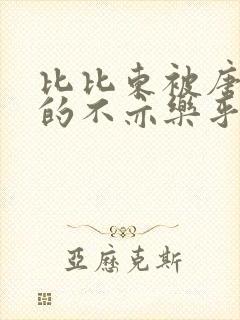 比比东被唐
的不亦樂乎
亞歷克斯